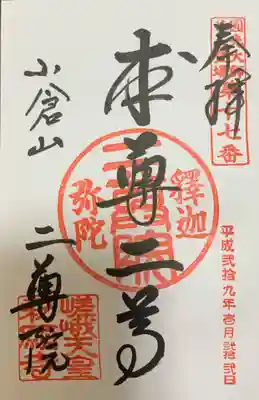 奉拝
七番
平成弐拾九年壱月弐拾弐日
本尊二尊
釋迦
弥陀
小倉山
二尊院
嵯峨天皇